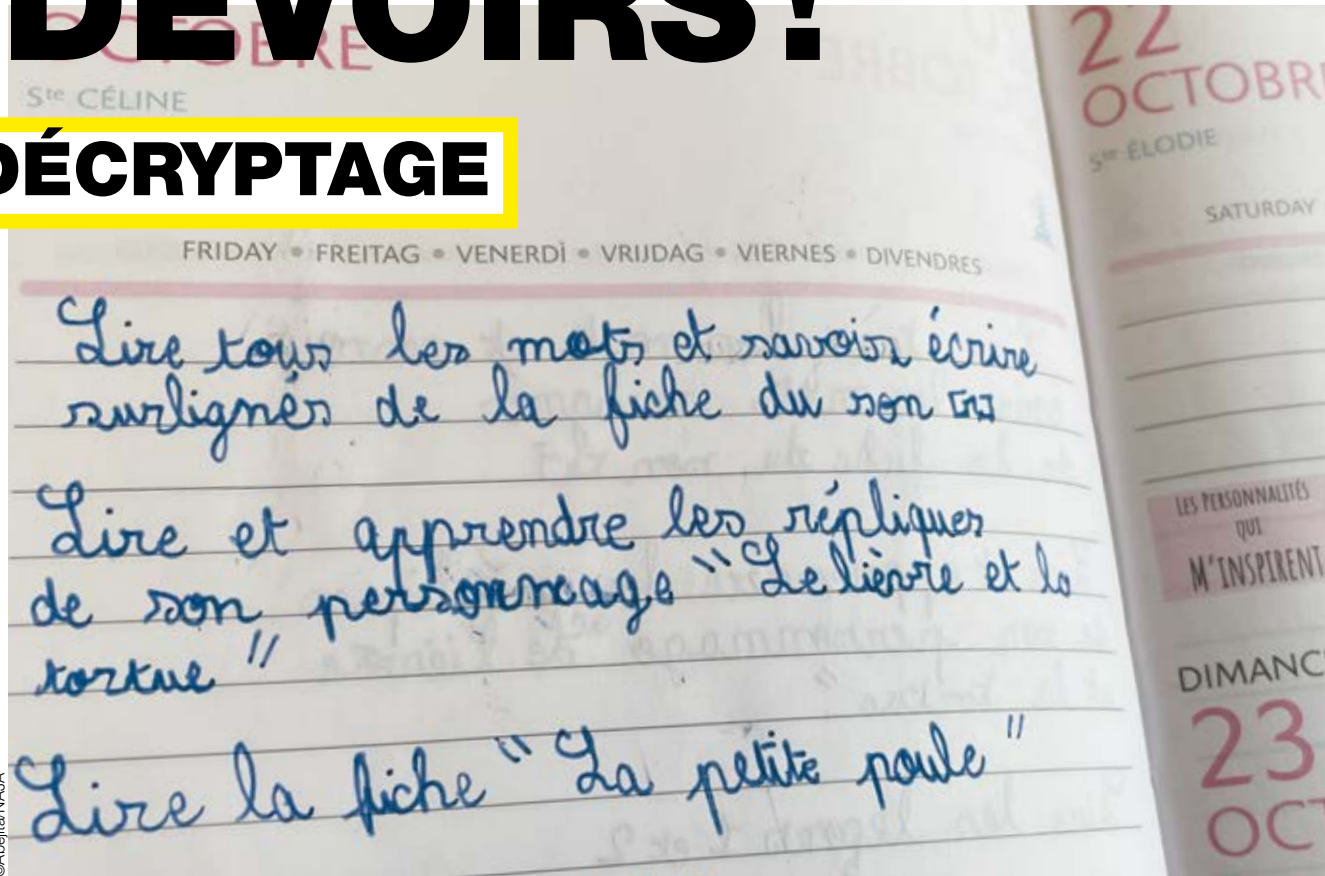 DEVOIRS!
OCTOBRE
Ste CÉLINE
DÉCRYPTAGE
FRIDAY • FREITAG • VENERDÌ • VRIJDAG • VIERNES • DIVENDRES
Lire tous les mots et savoir écrire
surlignés de la fiche du son [n]
Lire et apprendre les répliques
de son personnage "Le lièvre et la
tortue"
Lire la fiche "La petite poule"
22
OCTOBRE
Ste ÉLODIE
SATURDAY
LES PERSONNALITÉS
QUI
M'INSPIRENT
DIMANC
23
OCT
©Abejita/NAJA